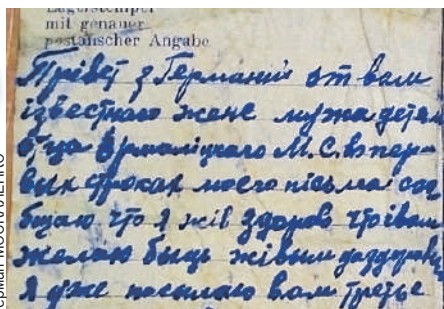 Lagerstempel
mit genauer
postalischer Angabe
Прівет з Германиі от вам
ізвестного жене мужа детям
отца Ермаліцкаго М.С. в пер
вых строках моего пісьма соо
бщаю что я жів здоров что і вам
желаю быць жівым да здоровы
Я уже посылаю вам третье